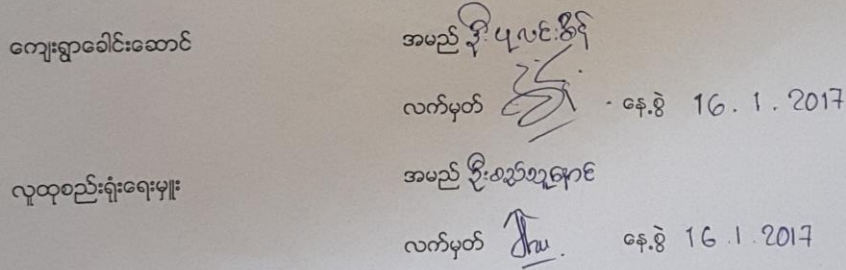 ကျေးရွာခေါင်းဆောင် အမည် ဦးပုလင်းစိန်
လက်မှတ် နေ့စွဲ 16.1.2017
လူထုစည်းရုံးရေးမှူး အမည် ဦးစည်သူနောင်
လက်မှတ် နေ့စွဲ 16.1.2017